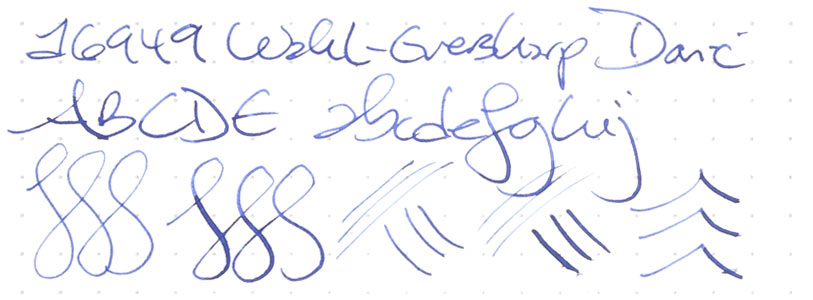 16949 Wahl-Eversharp Doric
ABCDE abcdefghij